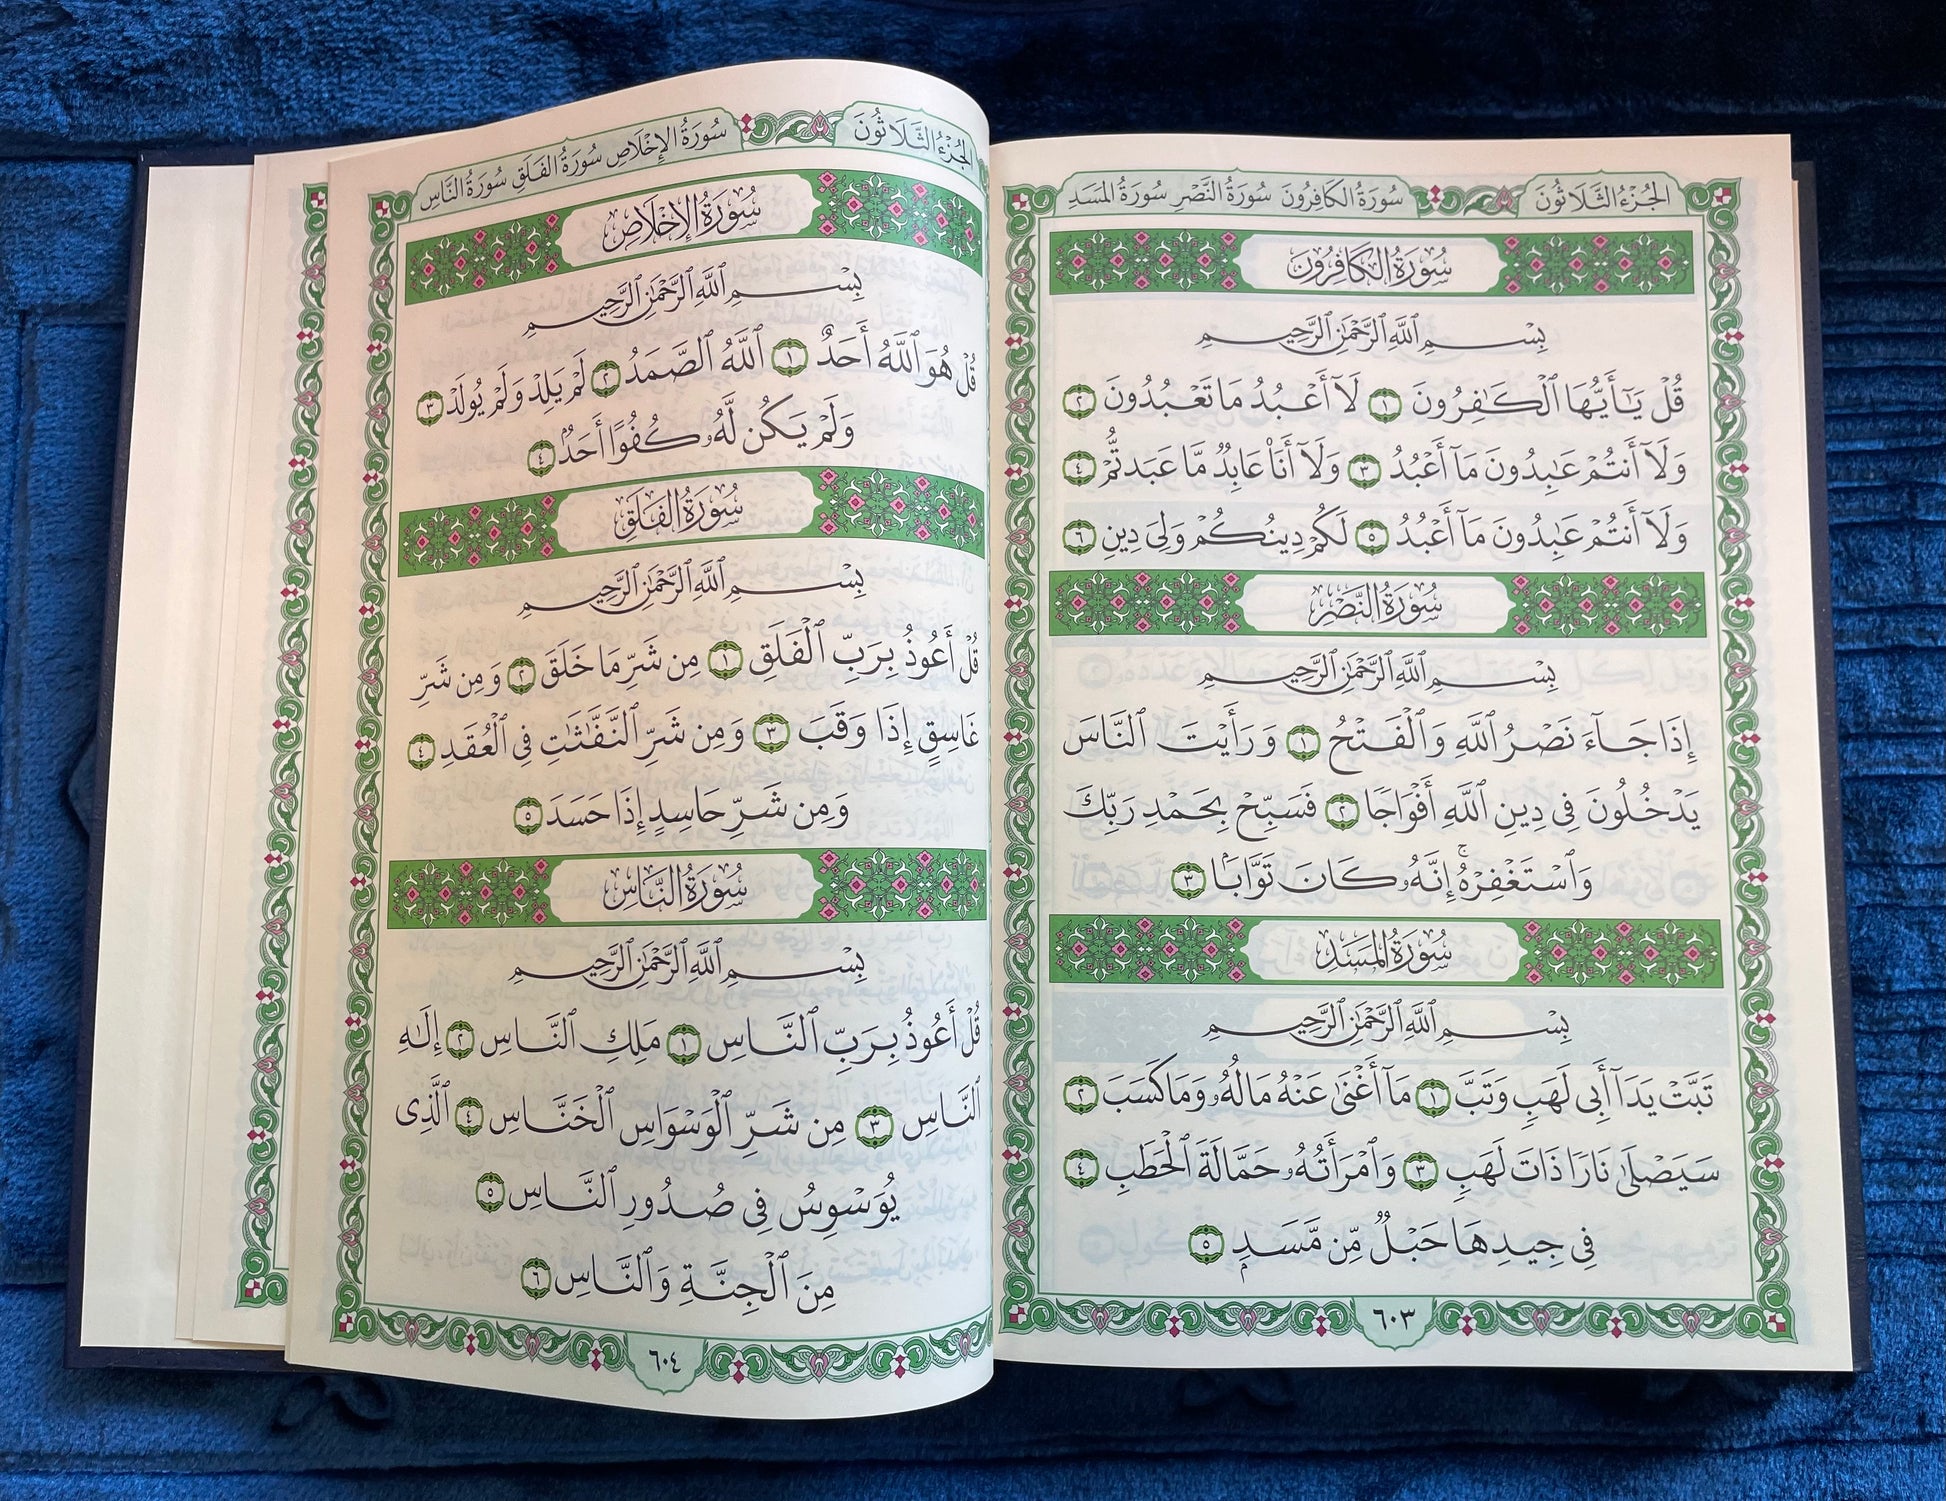 الجُزْءُ الثَّلَاثُونَ
سُورَةُ الكَافِرُونَ سُورَةُ النَّصْرِ سُورَةُ المَسَدِ
سُورَةُ الكَافِرُونَ
بِسْمِ ٱللَّهِ ٱلرَّحْمَٰنِ ٱلرَّحِيمِ
قُلْ يَـٰٓأَيُّهَا ٱلْكَـٰفِرُونَ ١ لَآ أَعْبُدُ مَا تَعْبُدُونَ ٢
وَلَآ أَنتُمْ عَـٰبِدُونَ مَآ أَعْبُدُ ٣ وَلَآ أَنَا۠ عَابِدٌ مَّا عَبَدتُّمْ ٤
وَلَآ أَنتُمْ عَـٰبِدُونَ مَآ أَعْبُدُ ٥ لَكُمْ دِينُكُمْ وَلِىَ دِينِ ٦
سُورَةُ النَّصْرِ
بِسْمِ ٱللَّهِ ٱلرَّحْمَٰنِ ٱلرَّحِيمِ
إِذَا جَآءَ نَصْرُ ٱللَّهِ وَٱلْفَتْحُ ١ وَرَأَيْتَ ٱلنَّاسَ
يَدْخُلُونَ فِى دِينِ ٱللَّهِ أَفْوَاجًا ٢ فَسَبِّحْ بِحَمْدِ رَبِّكَ
وَٱسْتَغْفِرْهُ ۚ إِنَّهُۥ كَانَ تَوَّابًۢا ٣
سُورَةُ المَسَدِ
بِسْمِ ٱللَّهِ ٱلرَّحْمَٰنِ ٱلرَّحِيمِ
تَبَّتْ يَدَآ أَبِى لَهَبٍ وَتَبَّ ١ مَآ أَغْنَىٰ عَنْهُ مَالُهُۥ وَمَا كَسَبَ ٢
سَيَصْلَىٰ نَارًا ذَاتَ لَهَبٍ ٣ وَٱمْرَأَتُهُۥ حَمَّالَةَ ٱلْحَطَبِ ٤
فِى جِيدِهَا حَبْلٌ مِّن مَّسَدٍۭ ٥
٦٠٣
الجُزْءُ الثَّلَاثُونَ
سُورَةُ الإِخْلَاصِ سُورَةُ الفَلَقِ سُورَةُ النَّاسِ
سُورَةُ الإِخْلَاصِ
بِسْمِ ٱللَّهِ ٱلرَّحْمَٰنِ ٱلرَّحِيمِ
قُلْ هُوَ ٱللَّهُ أَحَدٌ ١ ٱللَّهُ ٱلصَّمَدُ ٢ لَمْ يَلِدْ وَلَمْ يُولَدْ ٣
وَلَمْ يَكُن لَّهُۥ كُفُوًا أَحَدٌۢ ٤
سُورَةُ الفَلَقِ
بِسْمِ ٱللَّهِ ٱلرَّحْمَٰنِ ٱلرَّحِيمِ
قُلْ أَعُوذُ بِرَبِّ ٱلْفَلَقِ ١ مِن شَرِّ مَا خَلَقَ ٢ وَمِن شَرِّ
غَاسِقٍ إِذَا وَقَبَ ٣ وَمِن شَرِّ ٱلنَّفَّـٰثَـٰتِ فِى ٱلْعُقَدِ ٤
وَمِن شَرِّ حَاسِدٍ إِذَا حَسَدَ ٥
سُورَةُ النَّاسِ
بِسْمِ ٱللَّهِ ٱلرَّحْمَٰنِ ٱلرَّحِيمِ
قُلْ أَعُوذُ بِرَبِّ ٱلنَّاسِ ١ مَلِكِ ٱلنَّاسِ ٢ إِلَـٰهِ
ٱلنَّاسِ ٣ مِن شَرِّ ٱلْوَسْوَاسِ ٱلْخَنَّاسِ ٤ ٱلَّذِى
يُوَسْوِسُ فِى صُدُورِ ٱلنَّاسِ ٥
مِنَ ٱلْجِنَّةِ وَٱلنَّاسِ ٦
٦٠٤